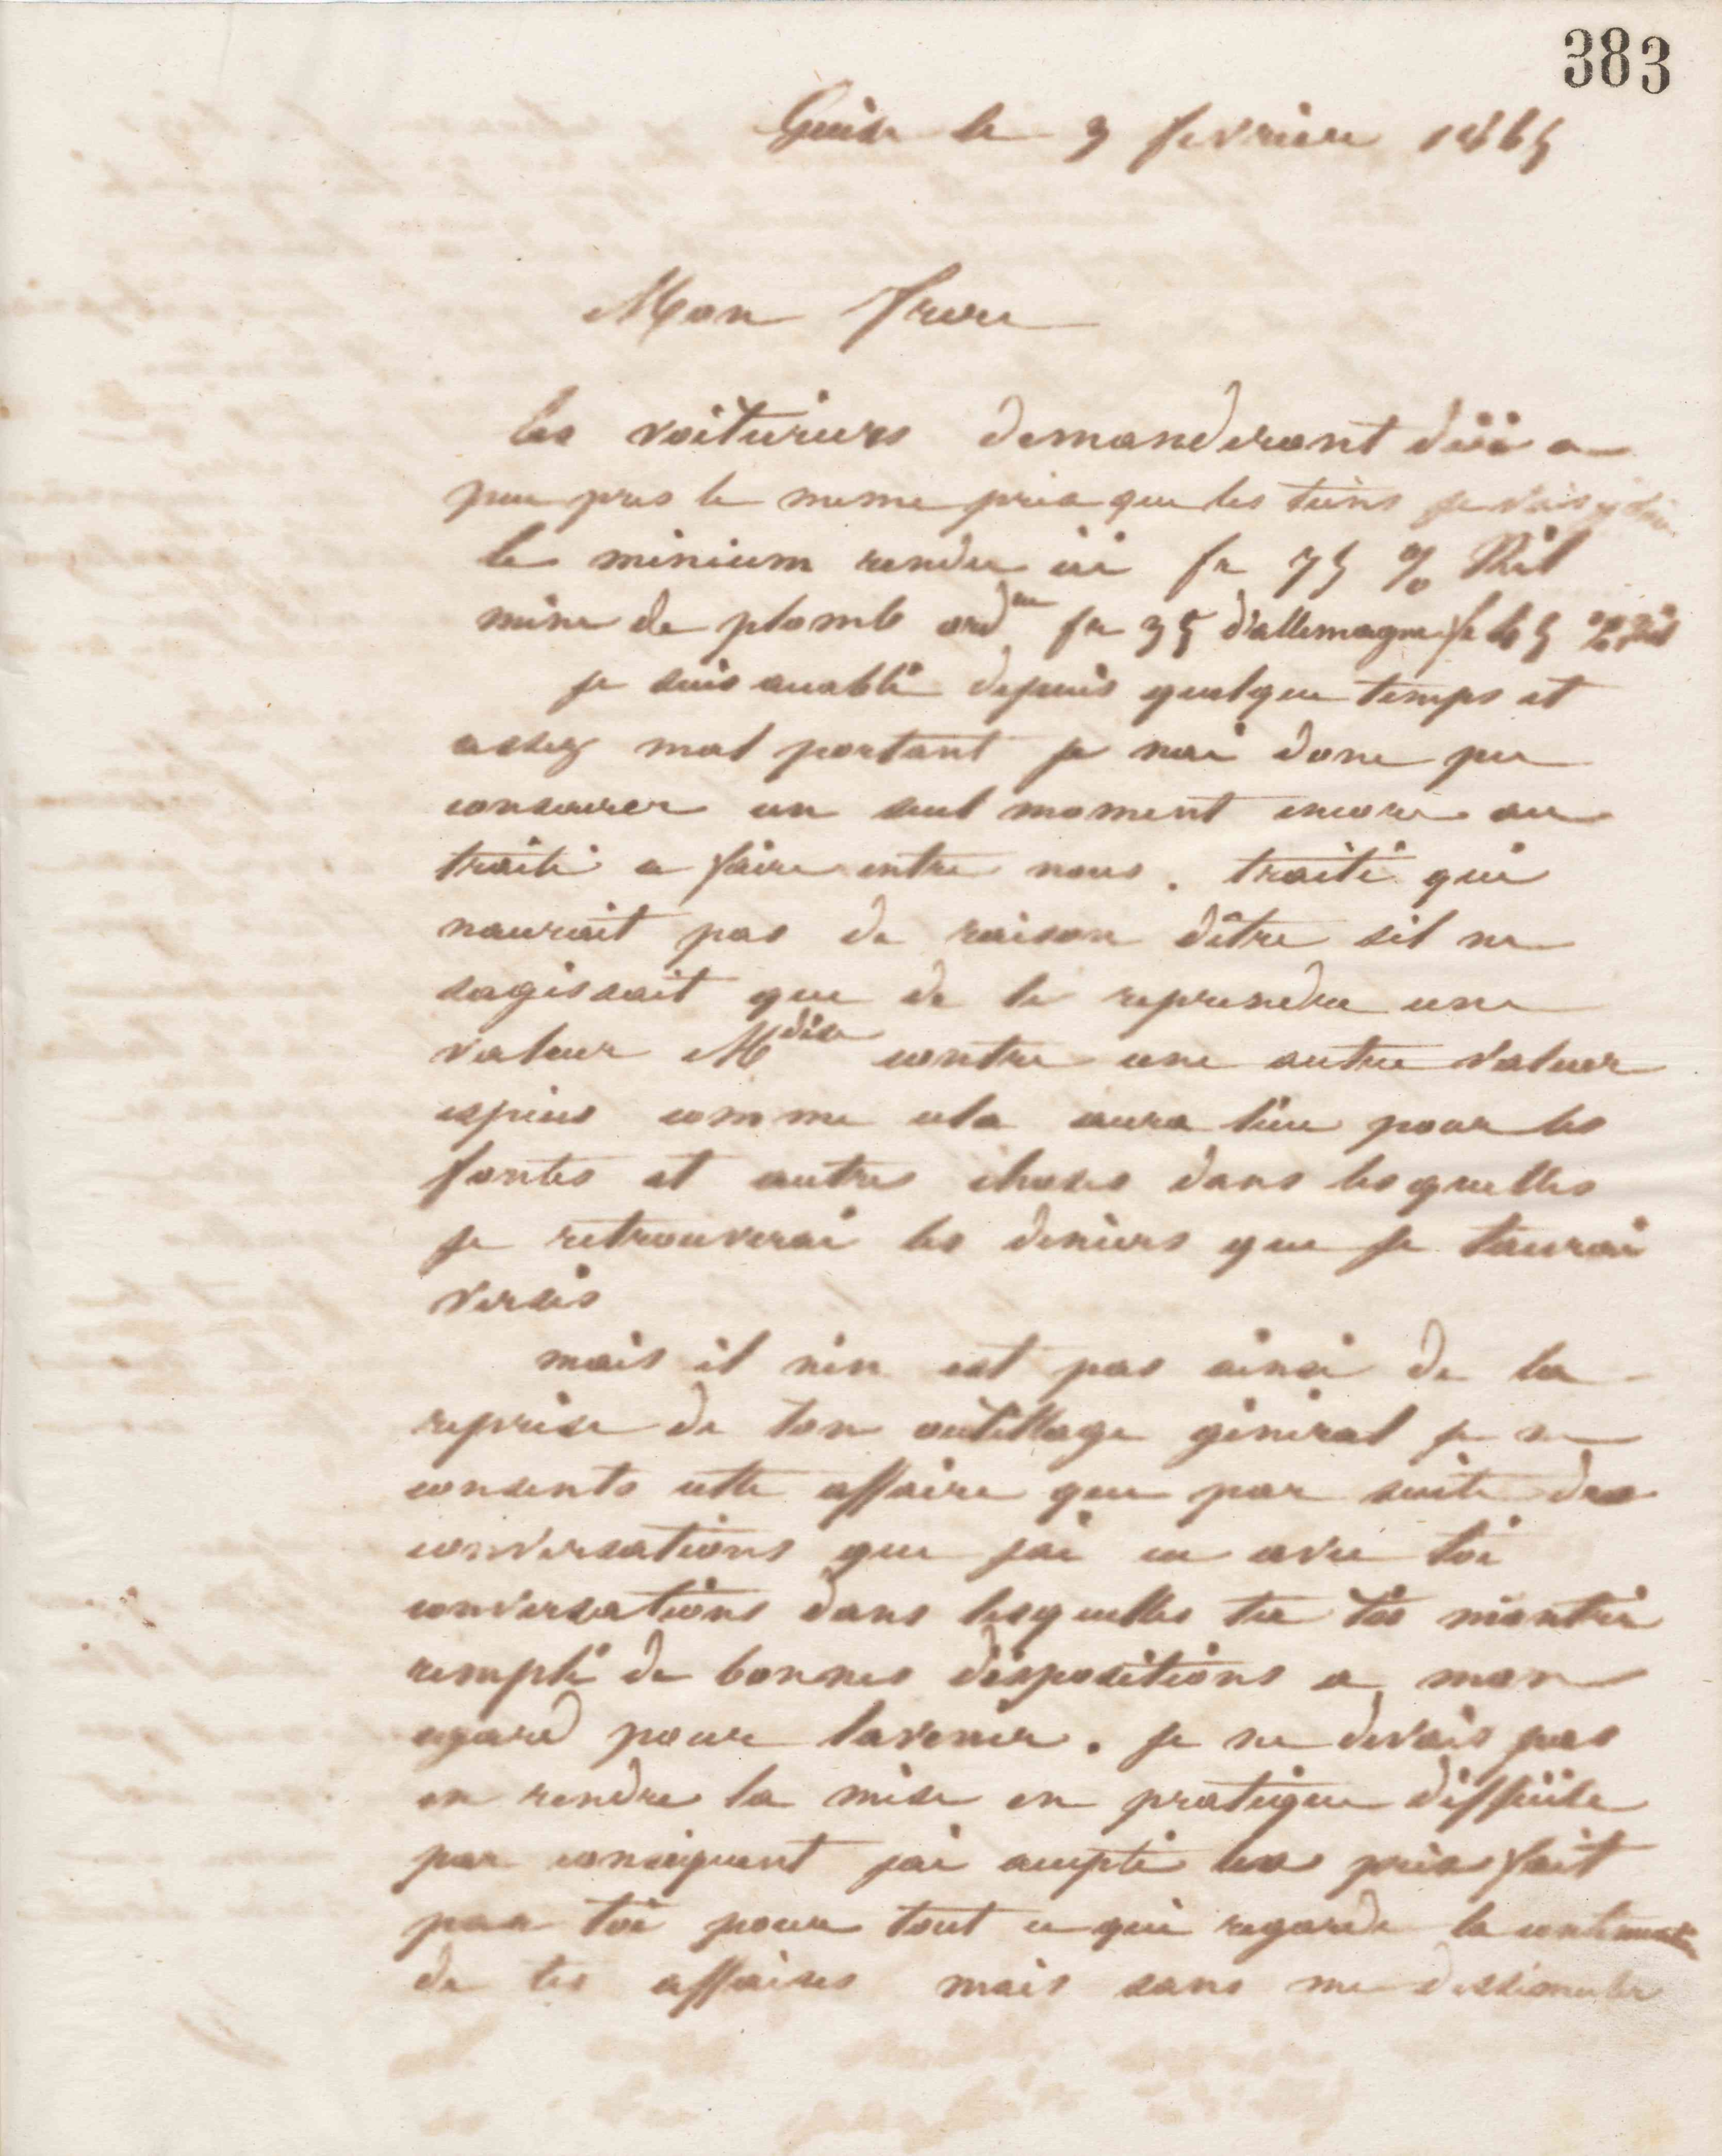 383
Guise le 3 fevrier 1865
Mon frere
les voituriers demanderont d'ici a
peu pres le meme prix que les tiens je vais
le minium rendu ici fr 75 %
mine de plomb ord^re fr 35 d'allemagne fr 45 %
je suis accablé depuis quelque temps et
assez mal portant je nai donc pu
consacrer un seul moment encore au
traité a faire entre nous. traité qui
naurait pas de raison dêtre sil ne
sagissait que de te reprendre une
valeur M^dise contre une autre valeur
espèces comme cela aura lieu pour les
fontes et autres choses dans lesquelles
je retrouverai les deniers que je taurai
versés
mais il nen est pas ainsi de la
reprise de ton outillage général je ne
consents cette affaire que par suite des
conversations que jai eu avec toi
conversations dans lesquelles tu tès montré
rempli de bonnes dispositions a mon
egard pour lavenir. je ne devais pas
en rendre la mise en pratique difficile
par conséquent jai accepté les prix fait
par toi pour tout ce qui regarde la
de tes affaires mais sans me dissimuler